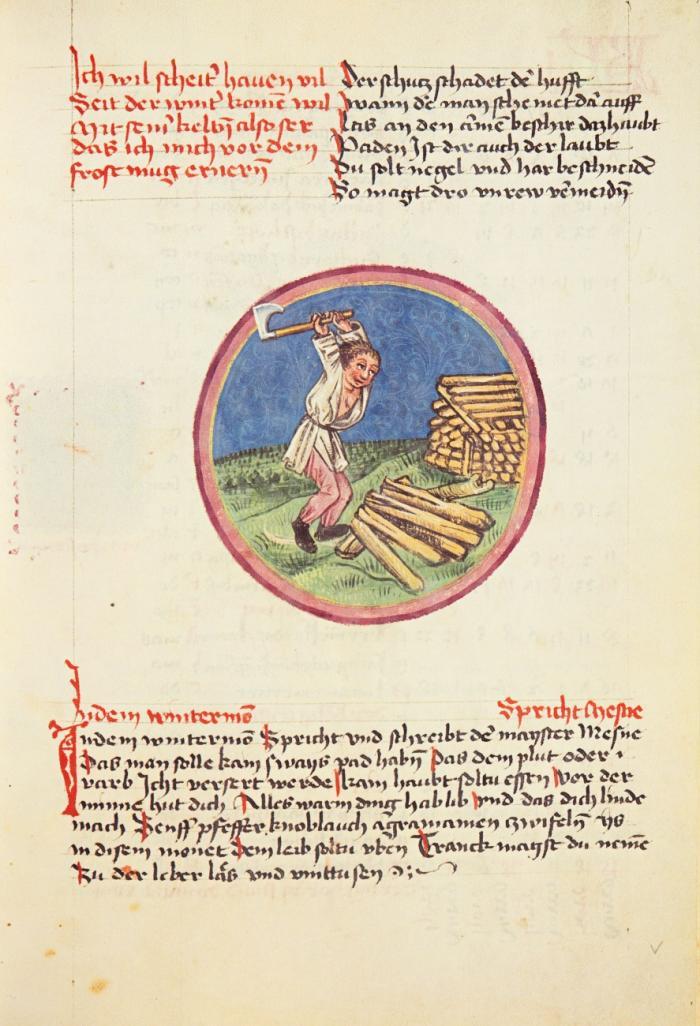 Ich wil scheit' hauen vil
Seit der wint' komen wil
Mit sein' keltn̄ also ser
das ich mich vor dem
frost mug ernern̄
Der schucz schadet de' hufft
wann de' man sche net da' auff
Las an den a'me' beschir daz haubt
Paden Ist dir auch der laubt
Du solt negel vnd har beschneide'
So magst dro vnrew v'meidn̄
Indem wintermō
Spricht Mesue
Indem wintermō Spricht vnd schreibt de' mayster Mesue
Das man solle kain sways pad habn̄ Das dem plut oder
varb Icht versert werde kain haubt soltu essen Vor der
minne hut dich Alles warm ding hab lib Vnd das dich linde
mach Senff pfeffer knoblauch zwifeln̄ ys
in disem monet Dem leib soltu vben Tranck magst du neme'
Zu der leber las vnd